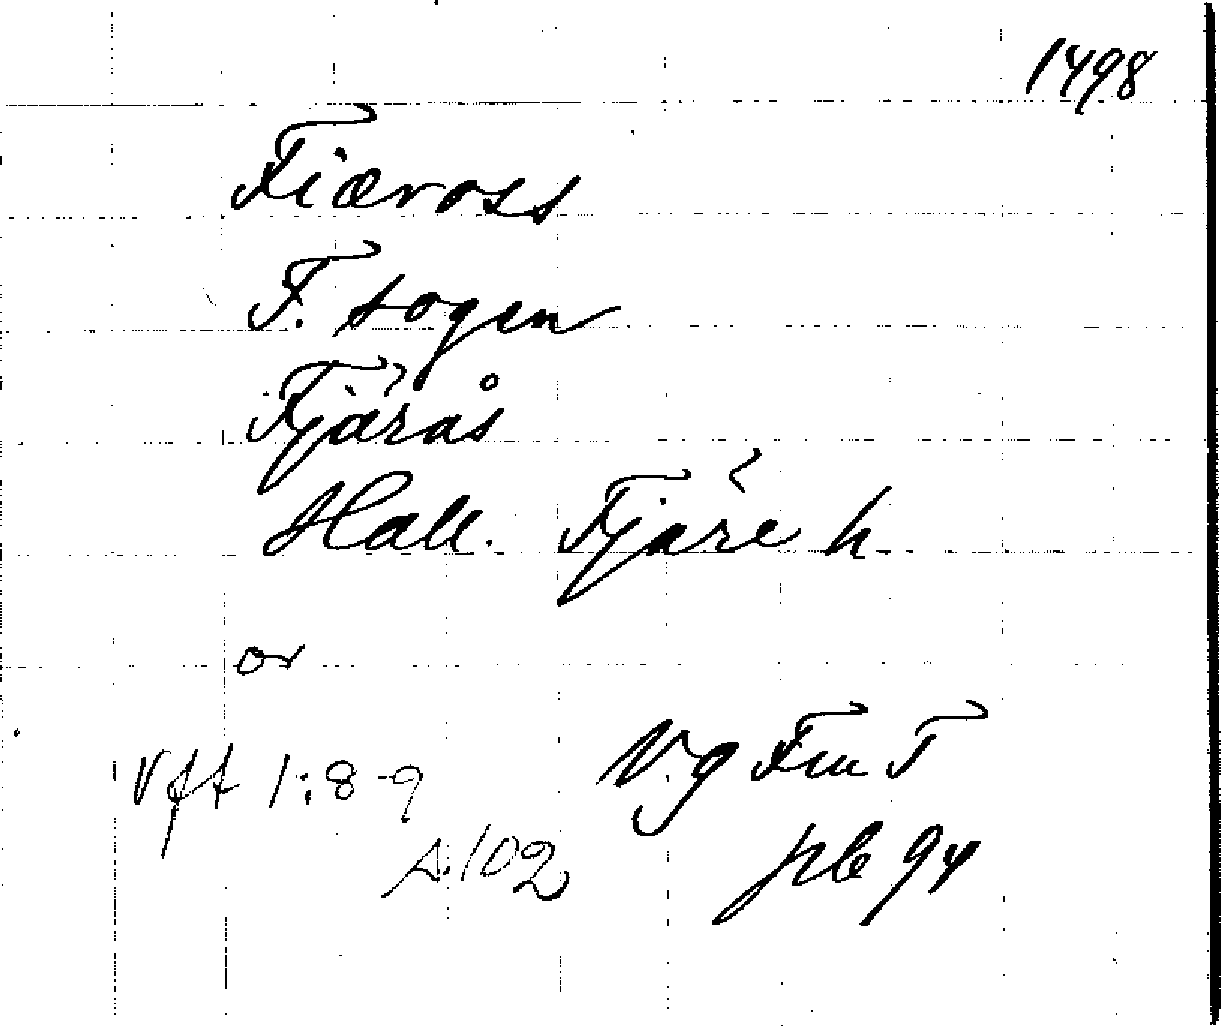 1498
Fiæross
F. sogen
Fjärås
Hall. Fjäre h
or
Vft 1:8-9
s. 102
Vg Fm T
pb 94